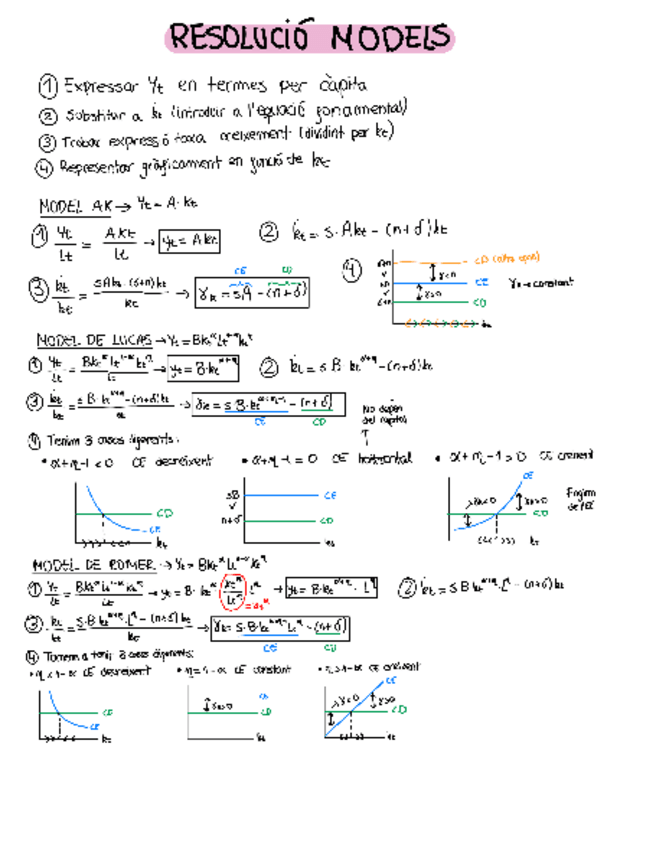 RESOLUCIÓ MODELS
① Expressar Yt en termes per càpita
② Substituir a k̇t (introduir a l'equació fonamental)
③ Trobar expressió taxa creixement (dividint per kt)
④ Representar gràficament en funció de kt
MODEL AK → Yt = A·kt
① Yt/Lt = AKt/Lt → yt = Akt ② k̇t = s·Akt - (n+δ)kt
③ k̇t/kt = sAkt-(δ+n)kt/kt → γk = sA - (n+δ)
CE CD
④ CD (altre opció)
γ<0
CE γk → constant
γ>0
CD
kt
MODEL DE LUCAS → Yt = BKt^α Lt^1-α kt^η
① Yt/Lt = BKt^α Lt^1-α kt^η/Lt → yt = B·kt^α+η ② k̇t = s B·kt^α+η - (n+δ)kt
③ k̇t/kt = s B·kt^α+η-(n+δ)kt → γk = s·B·kt^α+η-1 - (n+δ)
CE CD
No depèn
del capital
④ Tenim 3 casos diferents:
• α+η-1<0 CE decreixent • α+η-1=0 CE horitzontal • α+η-1>0 CE creixent
CD
CE
kt
sB CE
n+δ CD
kt
CE
γk<0 γk>0
CD
kt
MODEL DE ROMER → Yt = BKt^α Lt^1-α Kt^η
① Yt/Lt = BKt^α Lt^1-α Kt^η/Lt → yt = B·kt^α → yt = B·kt^α+η · L^η ② k̇t = s B kt^α+η·L^η - (n+δ)kt
③ k̇t/kt = s·B·kt^α+η·L^η - (n+δ)kt/kt → γk = s·B·kt^α+η-1 L^η - (n+δ)
CE CD
④ Tornem a tenir 3 casos diferents:
• η<1-α CE decreixent • η=1-α CE constant • η>1-α CE creixent
CD
CE
kt
CE
γk>0 CD
kt
CE
γ<0 γ>0
CD
kt